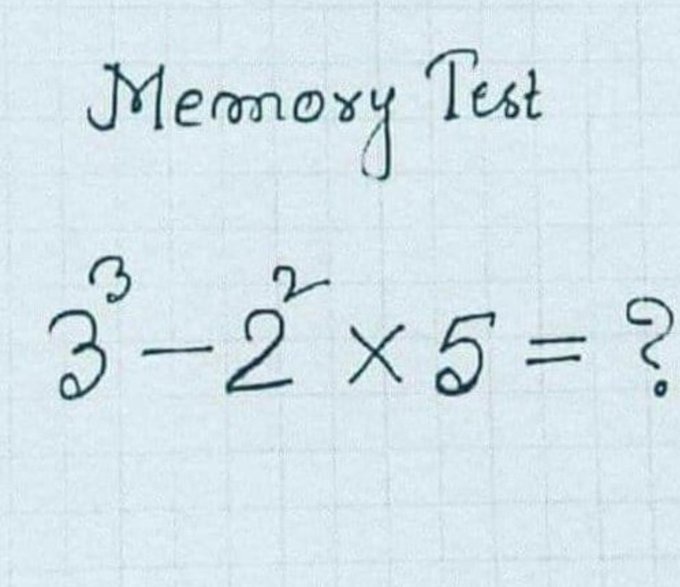 Memory Test
3³ − 2² × 5 = ?